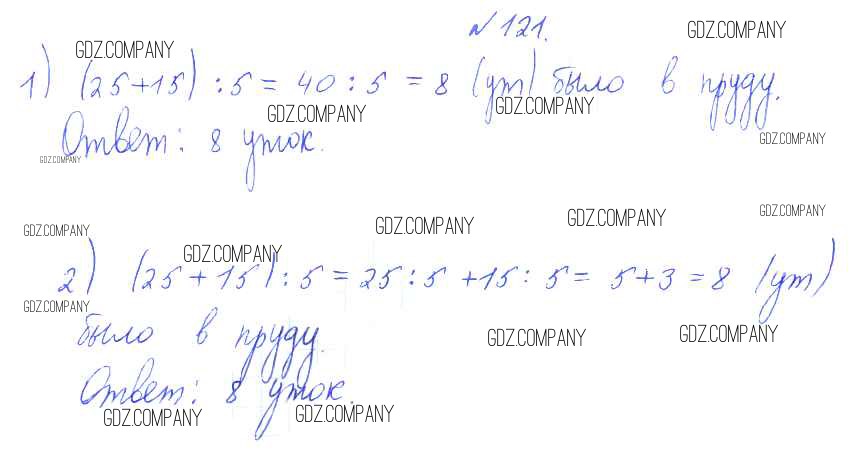 № 121.
GDZ.COMPANY GDZ.COMPANY
1) (25+15) : 5 = 40 : 5 = 8 (ут) было в пруду.
GDZ.COMPANY GDZ.COMPANY
Ответ: 8 уток.
GDZ.COMPANY GDZ.COMPANY
GDZ.COMPANY GDZ.COMPANY GDZ.COMPANY GDZ.COMPANY
GDZ.COMPANY
2) (25 + 15) : 5 = 25 : 5 + 15 : 5 = 5 + 3 = 8 (ут)
GDZ.COMPANY
было в пруду.
GDZ.COMPANY GDZ.COMPANY
Ответ: 8 уток.
GDZ.COMPANY GDZ.COMPANY